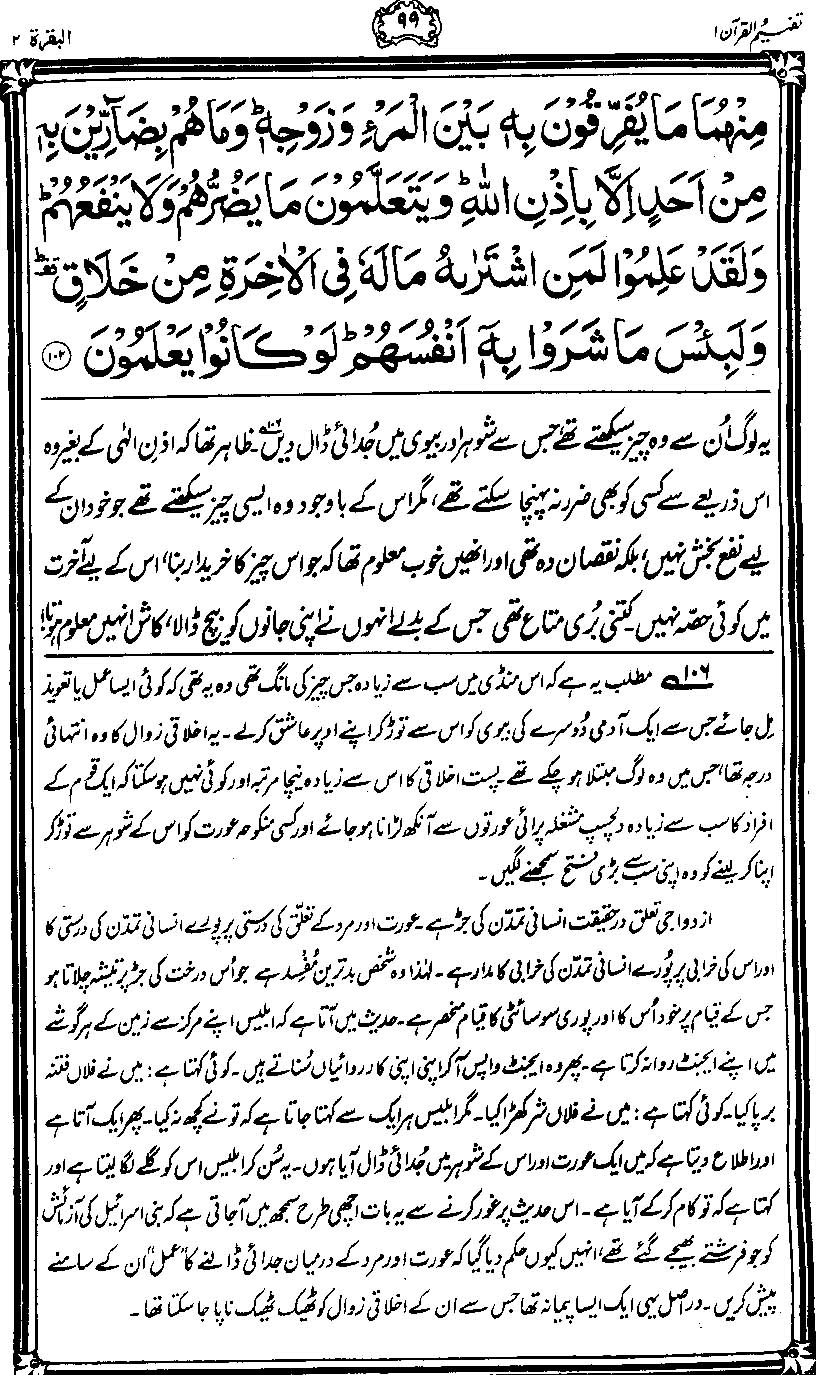 تفہیم القرآن ۱
۹۹
البقرۃ ۲
مِنْهُمَا مَا يُفَرِّقُوْنَ بِهٖ بَيْنَ الْمَرْءِ وَزَوْجِهٖ ؕ وَمَا هُمْ بِضَآرِّيْنَ بِهٖ
مِنْ اَحَدٍ اِلَّا بِاِذْنِ اللّٰهِ ؕ وَيَتَعَلَّمُوْنَ مَا يَضُرُّهُمْ وَلَا يَنْفَعُهُمْ ؕ
وَلَقَدْ عَلِمُوْا لَمَنِ اشْتَرٰىهُ مَا لَهٗ فِى الْاٰخِرَةِ مِنْ خَلَاقٍ ؕ
وَلَبِئْسَ مَا شَرَوْا بِهٖٓ اَنْفُسَهُمْ ؕ لَوْ كَانُوْا يَعْلَمُوْنَ ﴿۱۰۲﴾
یہ لوگ اُن سے وہ چیز سیکھتے تھے، جس سے شوہر اور بیوی میں جُدائی ڈال دیں۱۰۶۔ ظاہر تھا کہ اذنِ الٰہی کے بغیر وہ
اس ذریعے سے کسی کو بھی ضرر نہ پہنچا سکتے تھے، مگر اس کے باوجود وہ ایسی چیز سیکھتے تھے جو خود ان کے
لیے نفع بخش نہیں، بلکہ نقصان دہ تھی اور انھیں خوب معلوم تھا کہ جو اس چیز کا خریدار بنا، اس کے لیے آخرت
میں کوئی حصّہ نہیں۔ کتنی بُری متاع تھی جس کے بدلے انہوں نے اپنی جانوں کو بیچ ڈالا، کاش انہیں معلوم ہوتا!
۱۰۶ مطلب یہ ہے کہ اس منڈی میں سب سے زیادہ جس چیز کی مانگ تھی وہ یہ تھی کہ کوئی ایسا عمل یا تعویذ
مِل جائے جس سے ایک آدمی دُوسرے کی بیوی کو اس سے توڑ کر اپنے اوپر عاشق کرلے۔ یہ اخلاقی زوال کا وہ انتہائی
درجہ تھا، جس میں وہ لوگ مبتلا ہو چکے تھے۔ پست اخلاقی کا اس سے زیادہ نیچا مرتبہ اور کوئی نہیں ہوسکتا کہ ایک قوم کے
افراد کا سب سے زیادہ دلچسپ مشغلہ پرائی عورتوں سے آنکھ لڑانا ہو جائے اور کسی منکوحہ عورت کو اس کے شوہر سے توڑ کر
اپنا کر لینے کو وہ اپنی سب سے بڑی فتح سمجھنے لگیں۔
ازدواجی تعلق درحقیقت انسانی تمدّن کی جڑ ہے۔ عورت اور مرد کے تعلّق کی درستی پر پورے انسانی تمدّن کی درستی کا
اور اس کی خرابی پر پُورے انسانی تمدّن کی خرابی کا مدار ہے۔ لہٰذا وہ شخص بدترین مُفْسِد ہے جو اُس درخت کی جڑ پر تیشہ چلاتا ہو
جس کے قیام پر خود اُس کا اور پوری سوسائٹی کا قیام منحصر ہے۔ حدیث میں آتا ہے کہ ابلیس اپنے مرکز سے زمین کے ہر گوشے
میں اپنے ایجنٹ روانہ کرتا ہے۔ پھر وہ ایجنٹ واپس آکر اپنی اپنی کارروائیاں سُناتے ہیں۔ کوئی کہتا ہے: میں نے فلاں فتنہ
برپا کیا۔ کوئی کہتا ہے: میں نے فلاں شر کھڑا کیا۔ مگر ابلیس ہر ایک سے کہتا جاتا ہے کہ تو نے کچھ نہ کیا۔ پھر ایک آتا ہے
اور اطلاع دیتا ہے کہ میں ایک عورت اور اس کے شوہر میں جُدائی ڈال آیا ہوں۔ یہ سُن کر ابلیس اس کو گلے لگا لیتا ہے اور
کہتا ہے کہ تو کام کر کے آیا ہے۔ اس حدیث پر غور کرنے سے یہ بات اچھی طرح سمجھ میں آجاتی ہے کہ بنی اسرائیل کی آزمائش
کو جو فرشتے بھیجے گئے تھے، انہیں کیوں حکم دیا گیا کہ عورت اور مرد کے درمیان جدائی ڈالنے کا ”عمل“ ان کے سامنے
پیش کریں۔ دراصل یہی ایک ایسا پیمانہ تھا جس سے ان کے اخلاقی زوال کو ٹھیک ٹھیک ناپا جا سکتا تھا۔